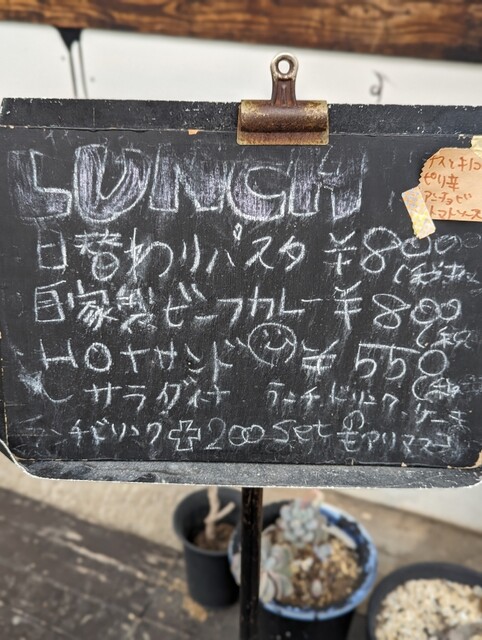 LUNCH
日替わりパスタ ¥800
ナスとキノコ
ピリ辛
アンチョビ
トマトソース
自家製ビーフカレー ¥800
HOTサンド ¥550
サラダ付 ランチドリンク ケーキ
ランチドリンク+200 set のモアリマス